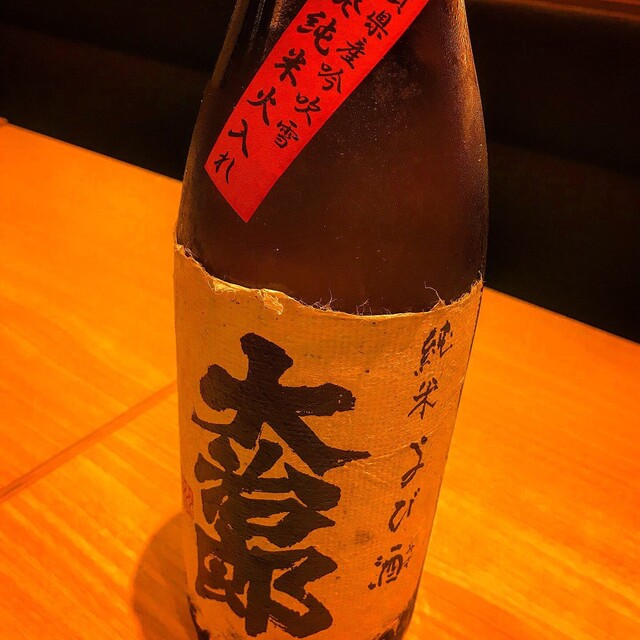 県産吟吹雪
純米火入れ
純米よび酒
大治郎